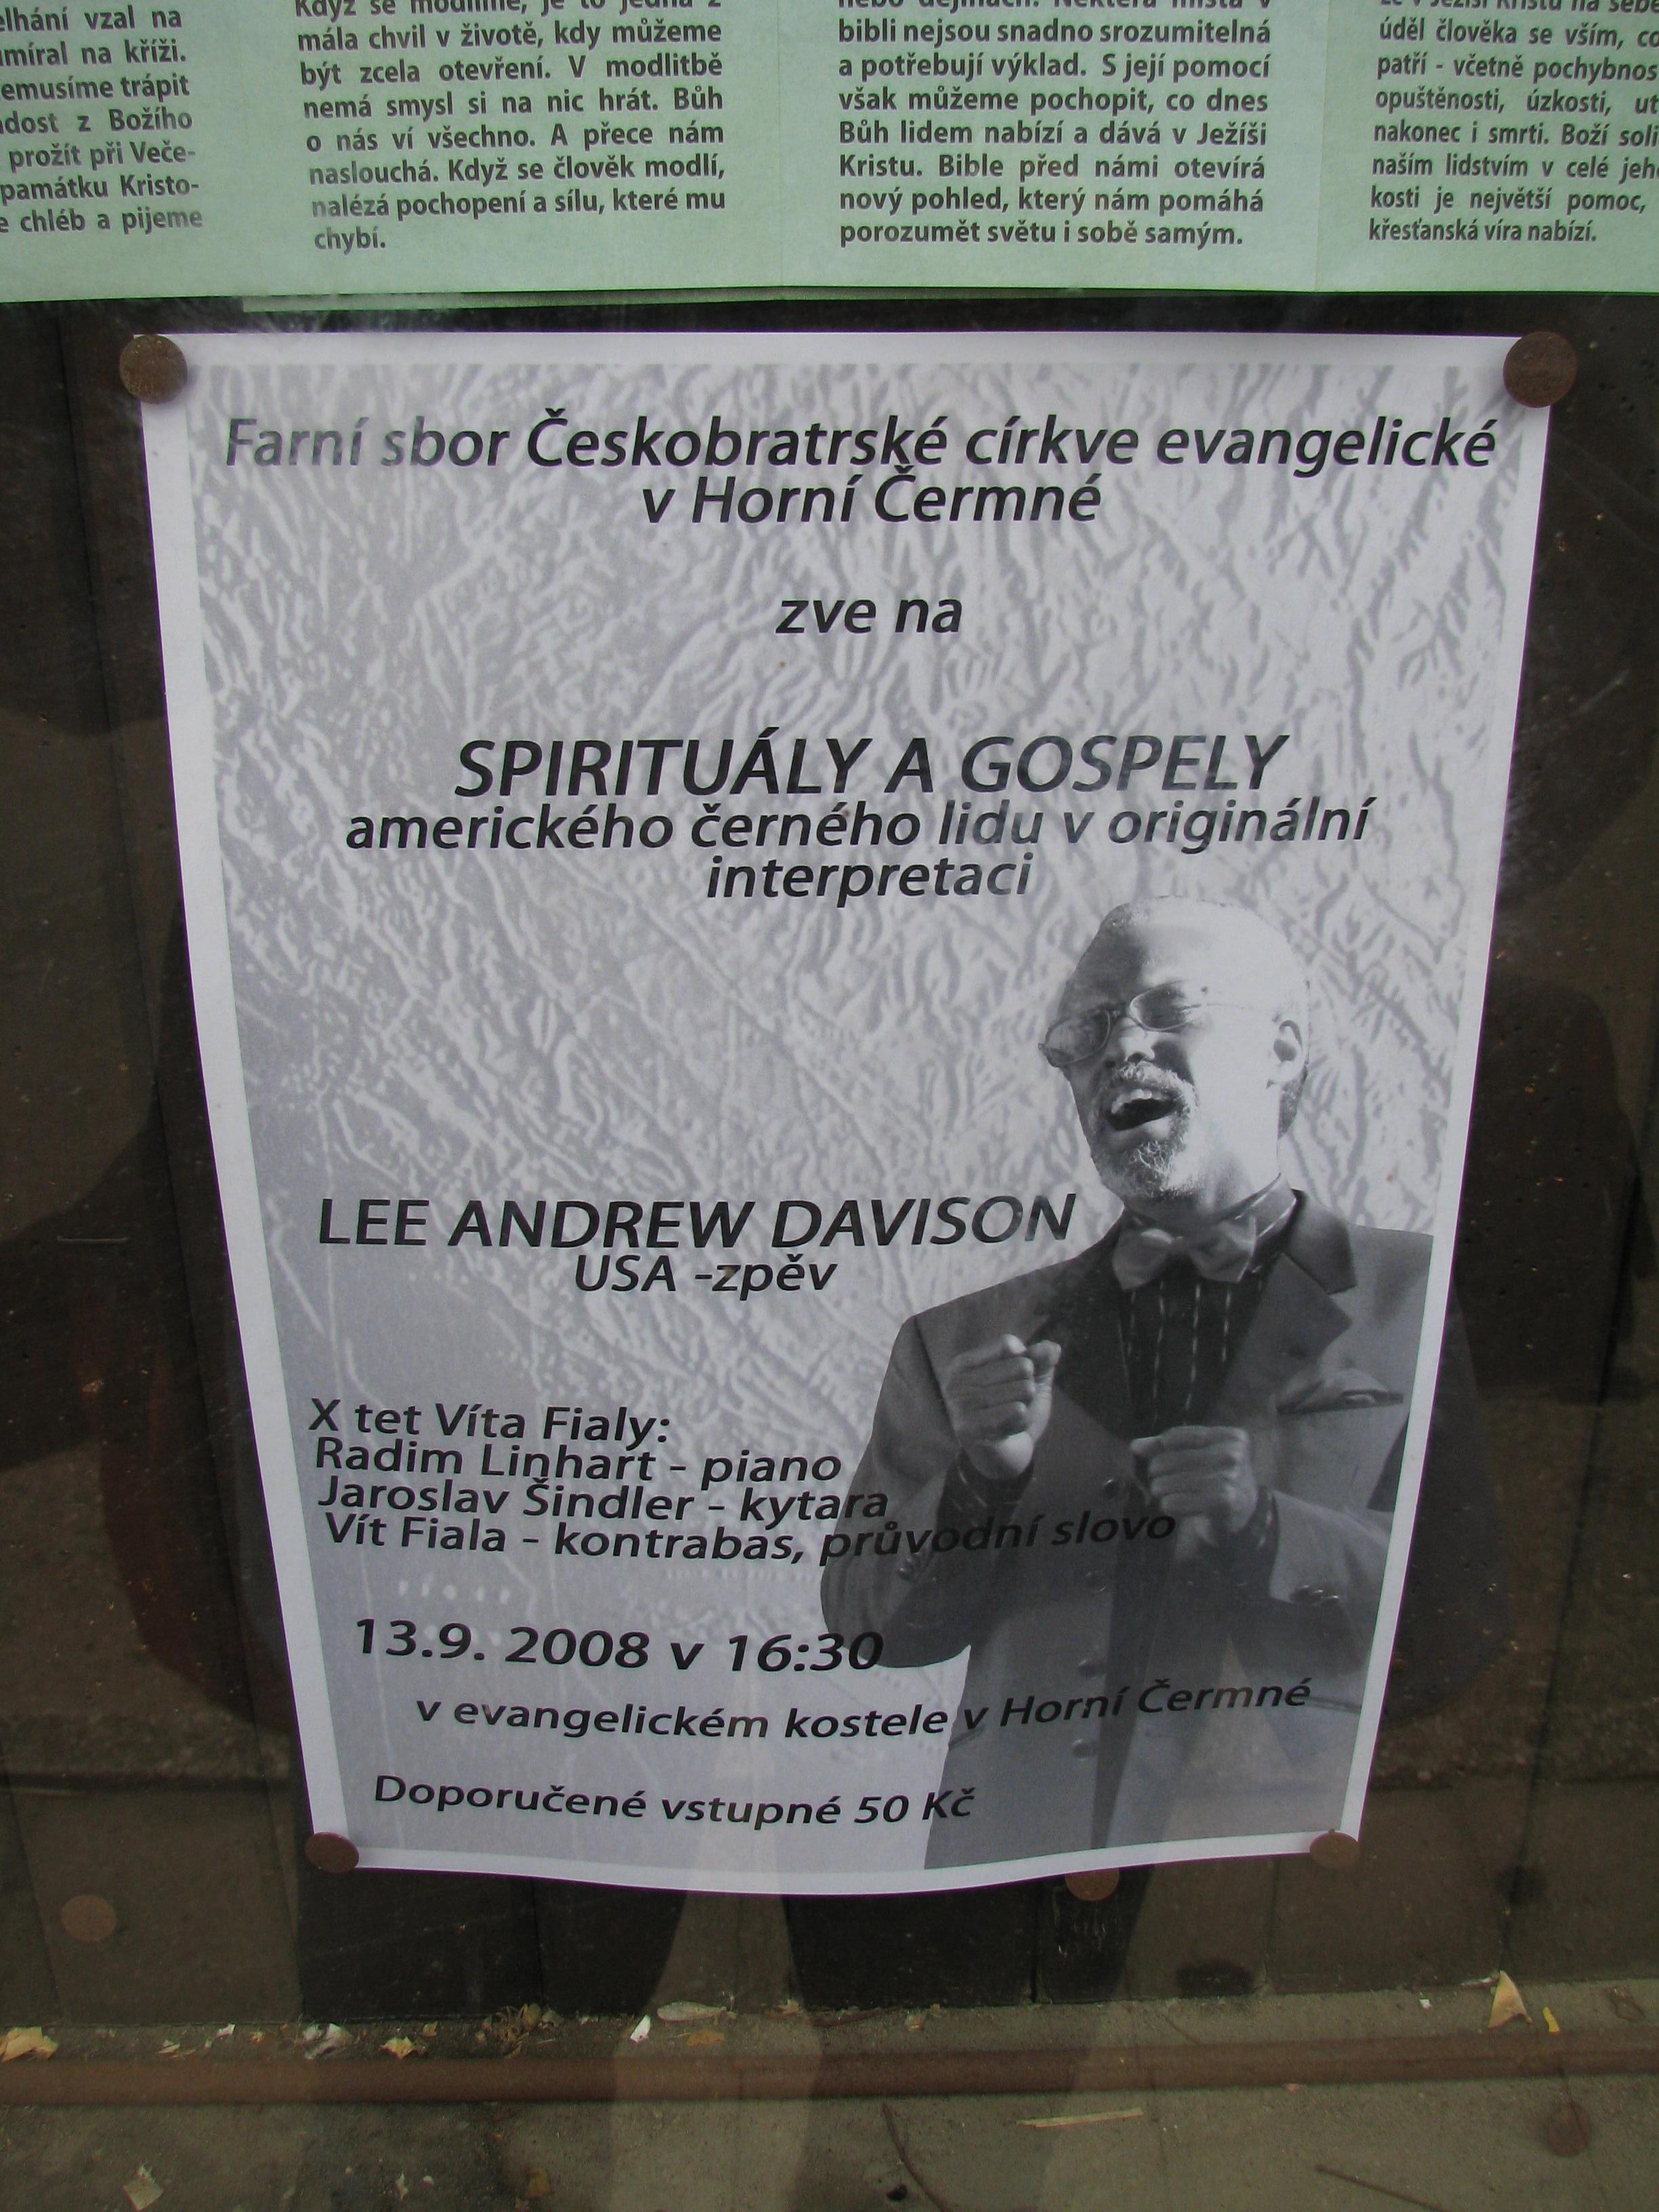 elhání vzal na
umíral na kříži.
emusíme trápit
dost z Božího
prožít při Veče-
památku Kristo-
e chléb a pijeme
Když se modlíme, je to jedna z
mála chvil v životě, kdy můžeme
být zcela otevření. V modlitbě
nemá smysl si na nic hrát. Bůh
o nás ví všechno. A přece nám
naslouchá. Když se člověk modlí,
nalézá pochopení a sílu, které mu
chybí.
nebo dějinách. Některá místa v
bibli nejsou snadno srozumitelná
a potřebují výklad. S její pomocí
však můžeme pochopit, co dnes
Bůh lidem nabízí a dává v Ježíši
Kristu. Bible před námi otevírá
nový pohled, který nám pomáhá
porozumět světu i sobě samým.
že v Ježíši Kristu na sebe
úděl člověka se vším, co
patří - včetně pochybnos
opuštěnosti, úzkosti, ut
nakonec i smrti. Boží soli
naším lidstvím v celé jeh
kosti je největší pomoc,
křesťanská víra nabízí.
Farní sbor Českobratrské církve evangelické
v Horní Čermné
zve na
SPIRITUÁLY A GOSPELY
amerického černého lidu v originální
interpretaci
LEE ANDREW DAVISON
USA -zpěv
X tet Víta Fialy:
Radim Linhart - piano
Jaroslav Šindler - kytara
Vít Fiala - kontrabas, průvodní slovo
13.9. 2008 v 16:30
v evangelickém kostele v Horní Čermné
Doporučené vstupné 50 Kč